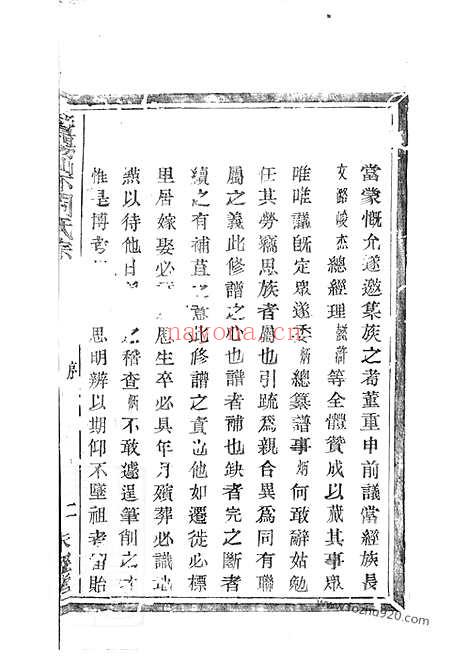 當蒙慨允遂邀集族之耆董重申前議當經族長
文路峻杰總經理等全體贊成以蕆其事眾
唯唯議既定眾遂委炳總纂譜事炳何敢辭姑勉
任其勞竊思族者屬也引疏為親合異為同有聯
屬之義此修譜之心也譜者補也缺者完之斷者
續之有補苴之意此修譜之責也他如遷徙必標
里居嫁娶必 生卒必具年月殯葬必識地
以待他日 之稽查炳不敢遽逞筆削之才
惟是博考 思明辨以期仰不墜祖考留貽
序
二
nayona.cn
www.fozhu920.com